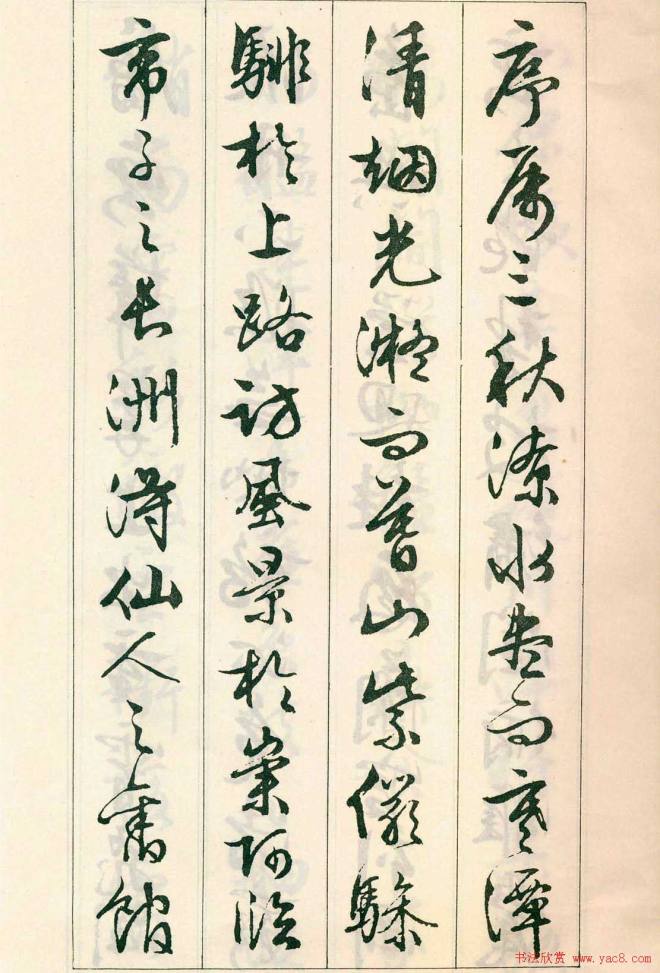 序属三秋潦水尽而寒潭
清烟光凝而暮山紫俨骖
騑於上路访風景於崇阿临
帝子之长洲得仙人之旧館
书法欣赏 www.yac8.com